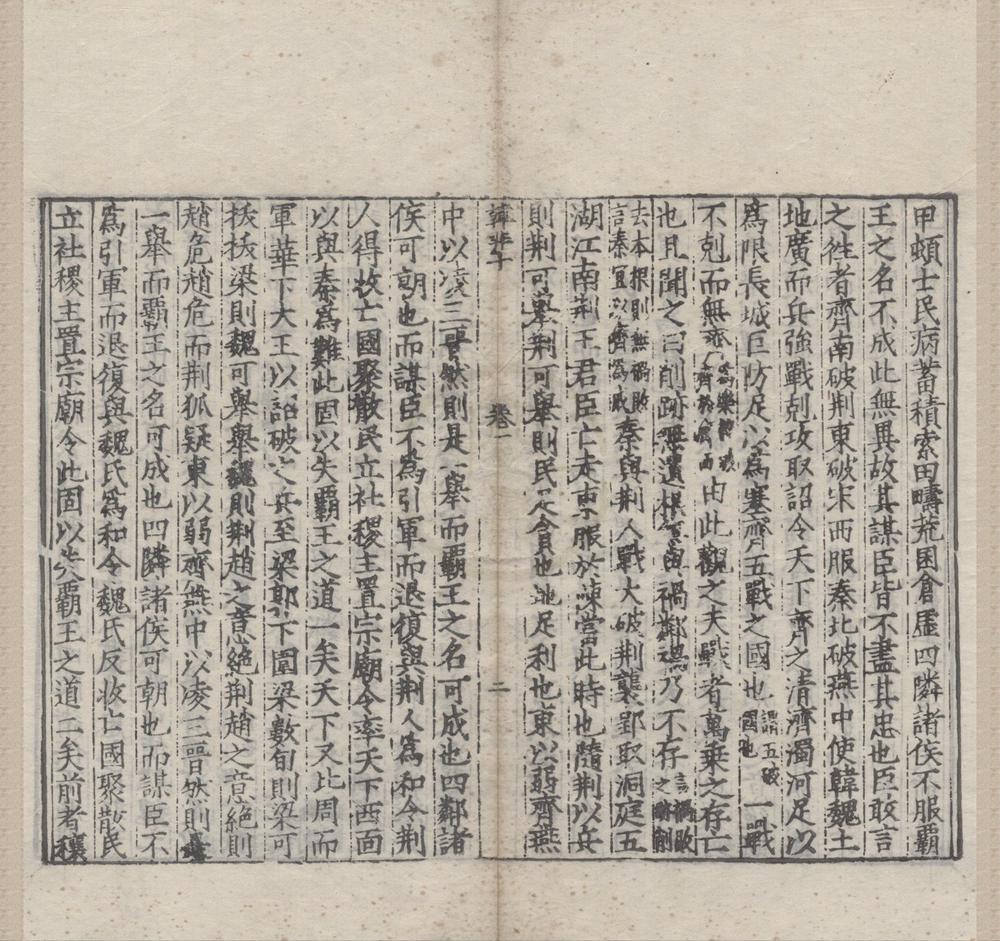 甲頓士民病蓄積索田疇荒囷倉虛四隣諸侯不服霸
王之名不成此無異故其謀臣皆不盡其忠也臣敢言
之徃者齊南破荆東破宋西服秦北破燕中使韓魏土
地廣而兵強戰剋攻取詔令天下齊之清濟濁河足以
爲限長城巨防足以爲塞齊五戰之國也謂五破國也一戰
不剋而無齊爲樂毅破齊於濟西由此觀之夫戰者萬乘之存亡
也且聞之曰削跡無遺根無與禍鄰禍乃不存言禍敗之跡削
去本根則無禍敗言秦宜以齊爲戒秦與荆人戰大破荆襲郢取洞庭五
湖江南荆王君臣亡走東服於陳當此時也隨荆以兵
則荆可舉荆可舉則民足貪也地足利也東以弱齊燕
韓非子 卷一 二
中以凌三晋然則是一舉而霸王之名可成也四鄰諸
侯可朝也而謀臣不爲引軍而退復與荆人爲和令荆
人得收亡國聚散民立社稷主置宗廟令率天下西面
以與秦爲難此固以失霸王之道一矣天下又比周而
軍華下大王以詔破之兵至梁郭下圍梁數旬則梁可
拔拔梁則魏可舉舉魏則荆趙之意絶荆趙之意絶則
趙危趙危而荆狐疑東以弱齊燕中以凌三晋然則是
一舉而霸王之名可成也四隣諸侯可朝也而謀臣不
爲引軍而退復與魏氏爲和令魏氏反收亡國聚散民
立社稷主置宗廟令此固以失霸王之道二矣前者穰